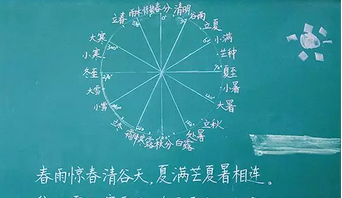 立春
雨水
惊蛰
春分
清明
谷雨
立夏
小满
芒种
夏至
小暑
大暑
立秋
处暑
白露
秋分
立冬
小雪
大雪
冬至
小寒
大寒
春雨惊春清谷天,夏满芒夏暑相连。